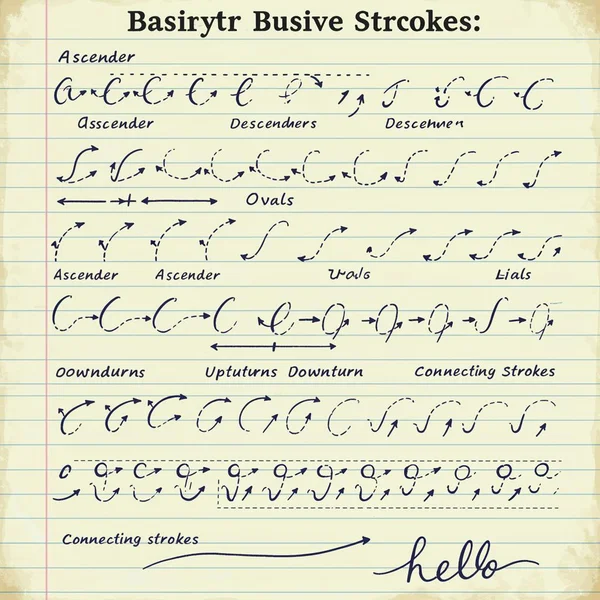 Basirytr Busive Strcokes:
Ascender
asscender Descendhers Descehmen
Ovals
Ascender Ascender Lials
Oowndurns Uptuturns Downturn Connecting Strokes
Connecting strokes
hello